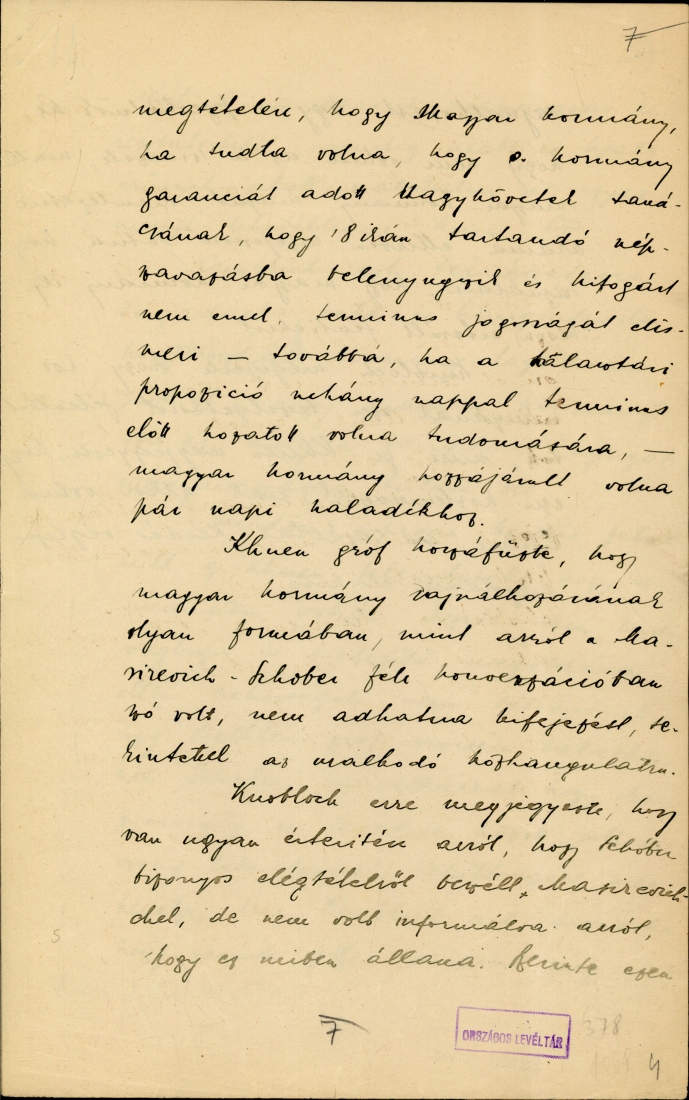 7
megtételére, hogy Magyar kormány,
ha tudta volna, hogy o. kormány
garanciát adott Nagykövetek taná-
csának, hogy 18 ikán tartandó nép-
szavazásba belenyugszik és kifogást
nem emel, terminus jogosságát elis-
meri — továbbá, ha a halasztási
propozició néhány nappal terminus
előtt hozatott volna tudomására, —
magyar kormány hozzájárult volna
pár napi haladékhoz.
Khuen gróf hozzáfűzte, hogy
magyar kormány sajnálkozásának
olyan formában, mint arról a Ma-
sirevich - Schober féle konverzációban
szó volt, nem adhatna kifejezést, te-
kintettel az uralkodó közhangulatra.
Knobloch erre megjegyezte, hogy
van ugyan értesitése arról, hogy Schober
bizonyos elégtételről beszélt Masirevich-
chel, de nem volt informálva arról,
hogy ez miben állana. Szerinte ezen
7
ORSZÁGOS LEVÉLTÁR
378
4